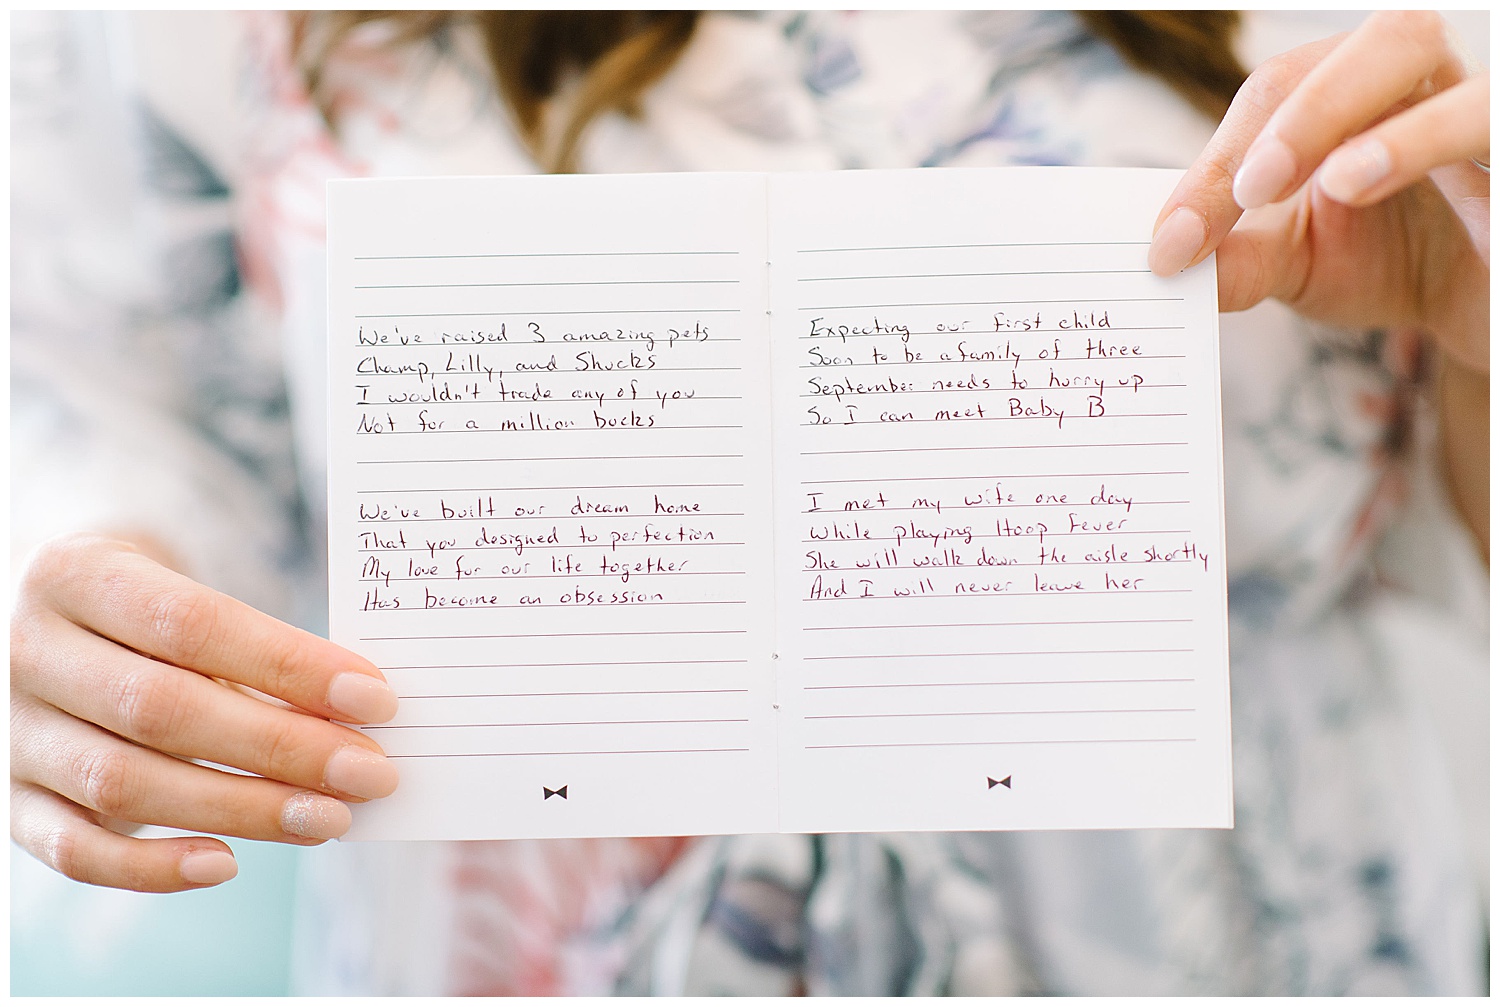 We've raised 3 amazing pets
Champ, Lilly, and Shucks
I wouldn't trade any of you
Not for a million bucks
We've built our dream home
That you designed to perfection
My love for our life together
Has become an obsession
Expecting our first child
Soon to be a family of three
September needs to hurry up
So I can meet Baby B
I met my wife one day
While playing Hoop Fever
She will walk down the aisle shortly
And I will never leave her